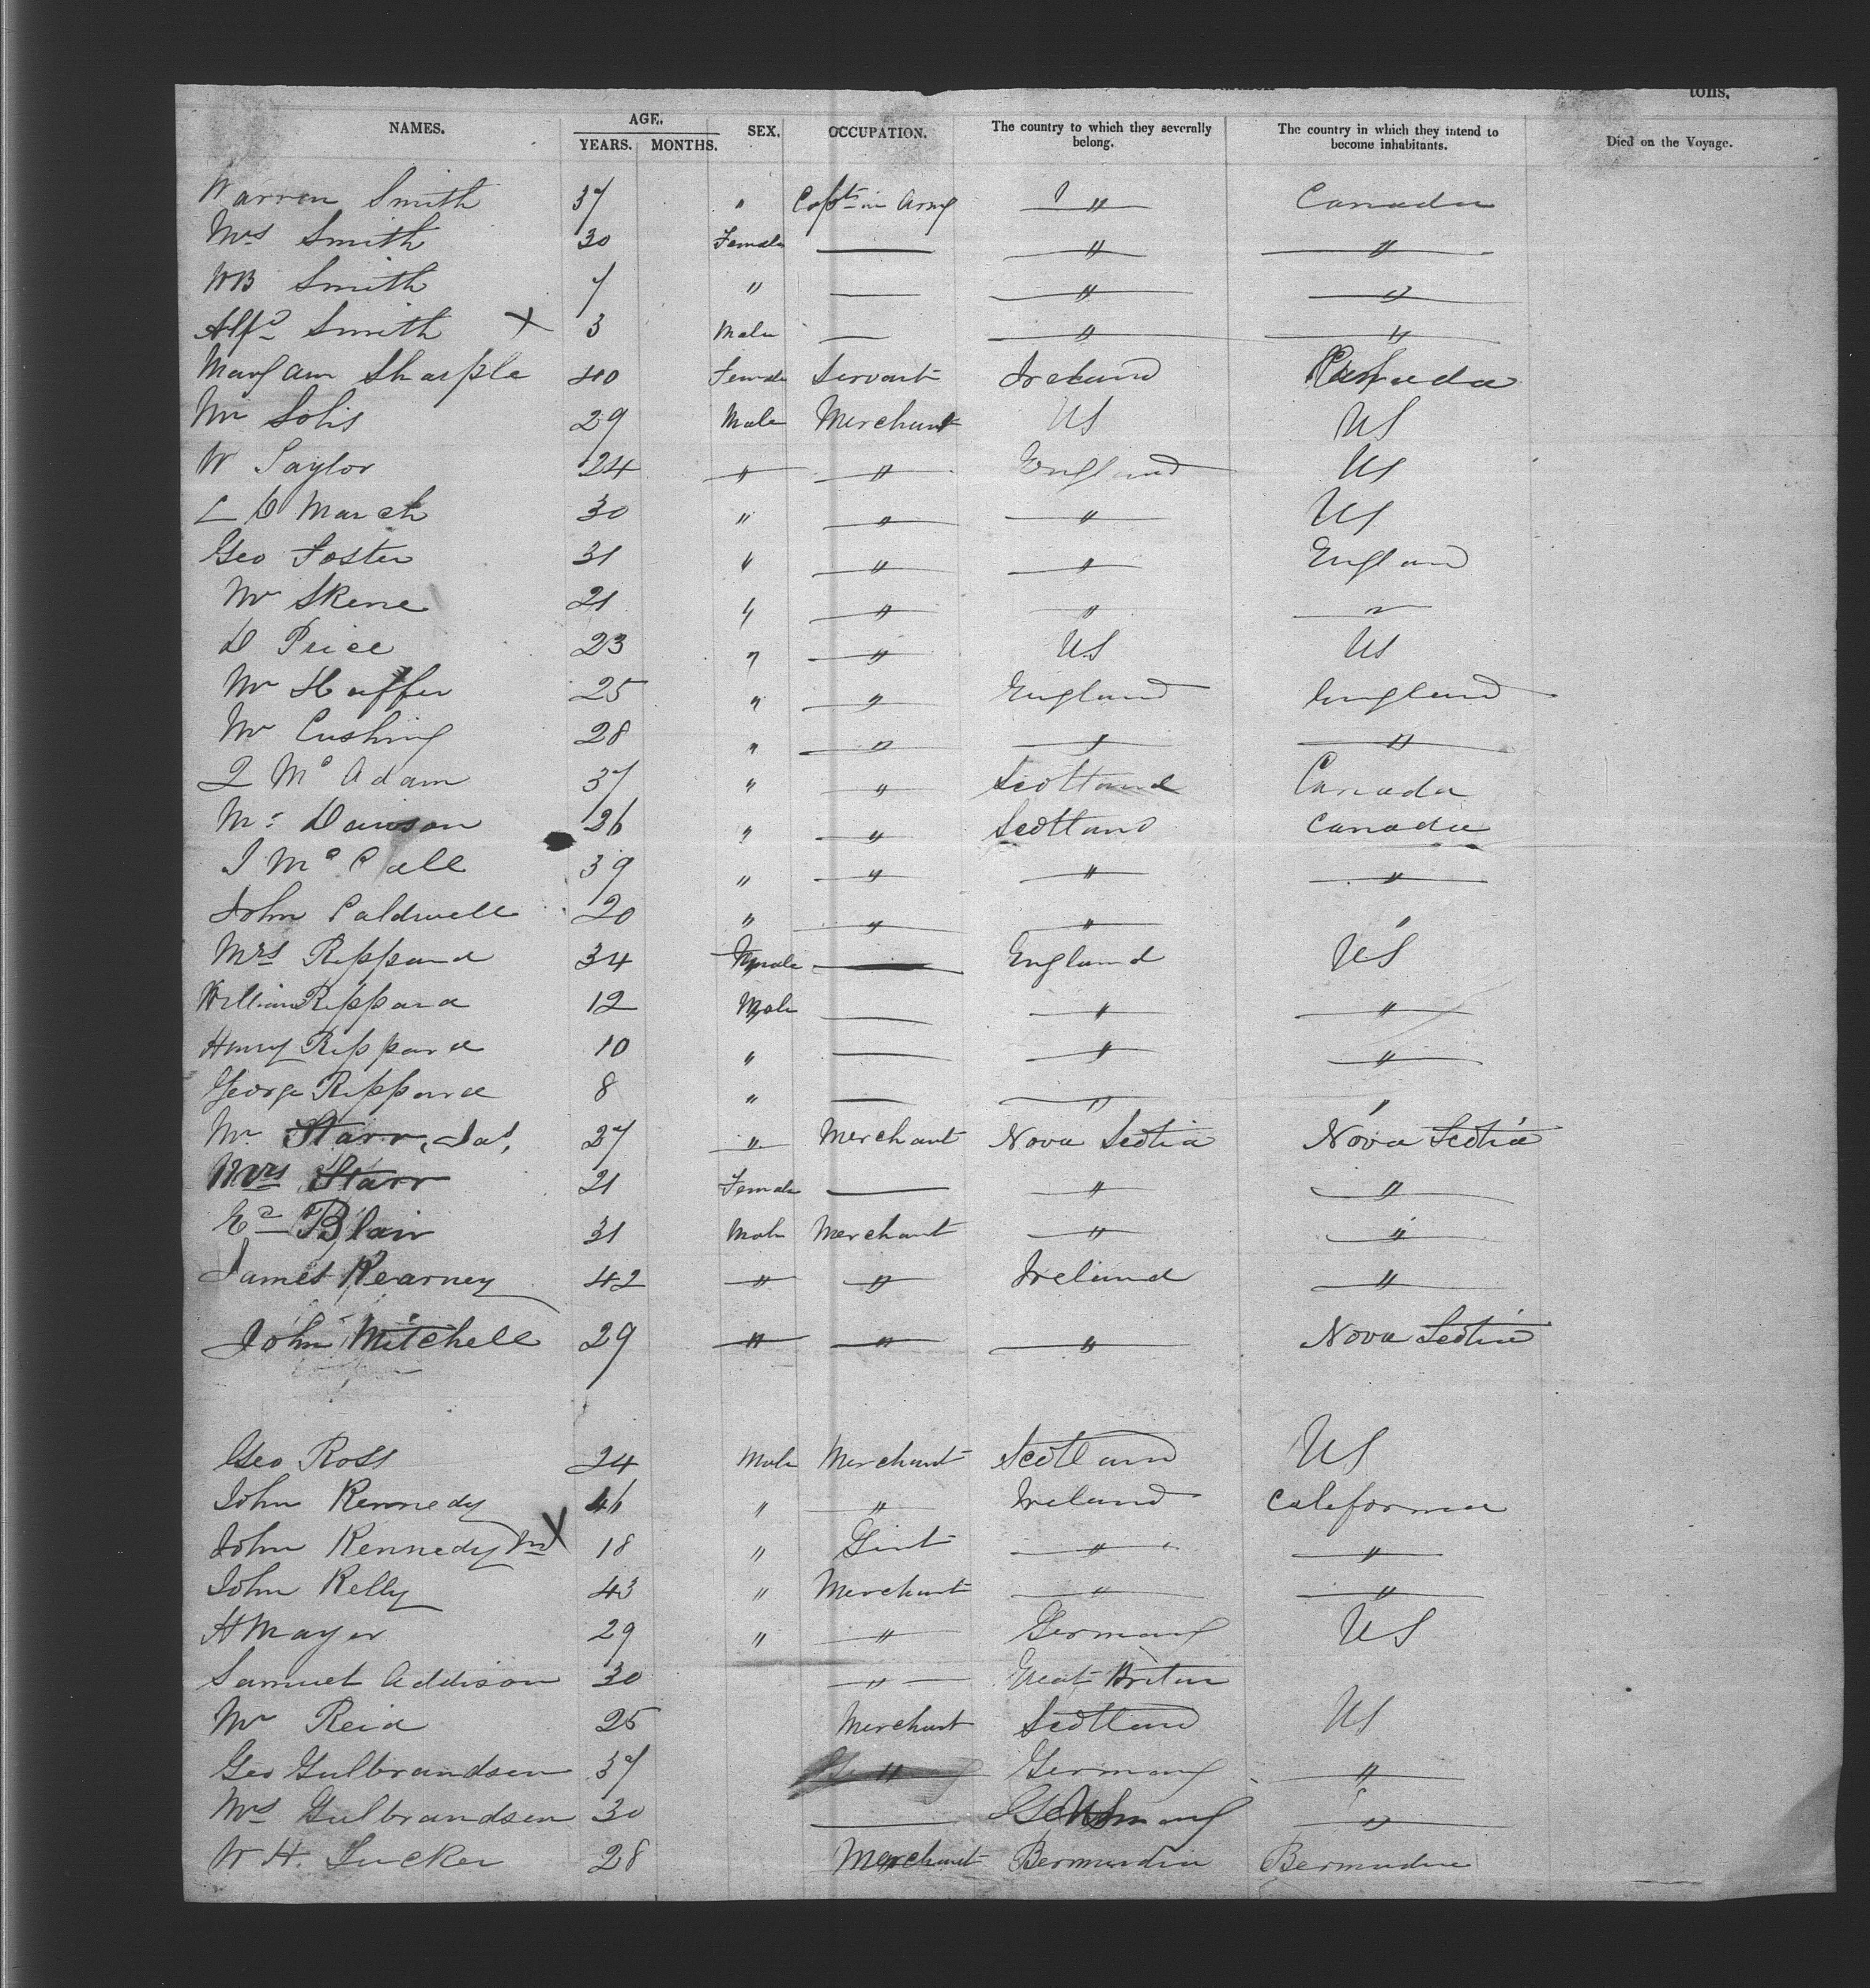 tons.
NAMES. AGE. YEARS. MONTHS. SEX. OCCUPATION. The country to which they severally belong. The country in which they intend to become inhabitants. Died on the Voyage.
Warren Smith 37 " Capt in Army " Canada
Mrs Smith 30 Female — " "
WB Smith 7 " — " "
Alfd Smith X 3 Male — " "
Marg Ann Sharple 40 Female Servant Ireland Canada
Mr Solis 29 Male Merchant US US
W Taylor 24 " " England US
L D March 30 " " " US
Geo Foster 31 " " " England
Mr Skene 21 " " " "
D Price 23 " " US US
Mr Haffer 25 " " England England
Mr Cushing 28 " " " "
Mc Adam 37 " " Scotland Canada
Mr Dawson 26 " " Scotland Canada
J Mc Call 39 " " " "
John Caldwell 20 " " " "
Mrs Rippard 34 Female — England US
William Rippard 12 Male — " "
Henry Rippard 10 " — " "
George Rippard 8 " — " "
Mr Starr, Jas, 27 " Merchant Nova Scotia Nova Scotia
Mrs Starr 21 Female — " "
Ed Blair 31 Male Merchant " "
James Kearney 42 " " Ireland "
John Mitchell 29 " " " Nova Scotia
Geo Ross 24 Male Merchant Scotland US
John Kennedy 46 " " Ireland California
John Kennedy Jnr X 18 " Gint " "
John Kelly 43 " Merchant " "
H Mayer 29 " " Germany US
Samuel Addison 30 " Great Britain
Mr Reid 25 Merchant Scotland US
Geo Gulbrandsen 37 " Germany "
Mrs Gulbrandsen 30 — Germany "
W H. Tucker 28 Merchant Bermudia Bermudia